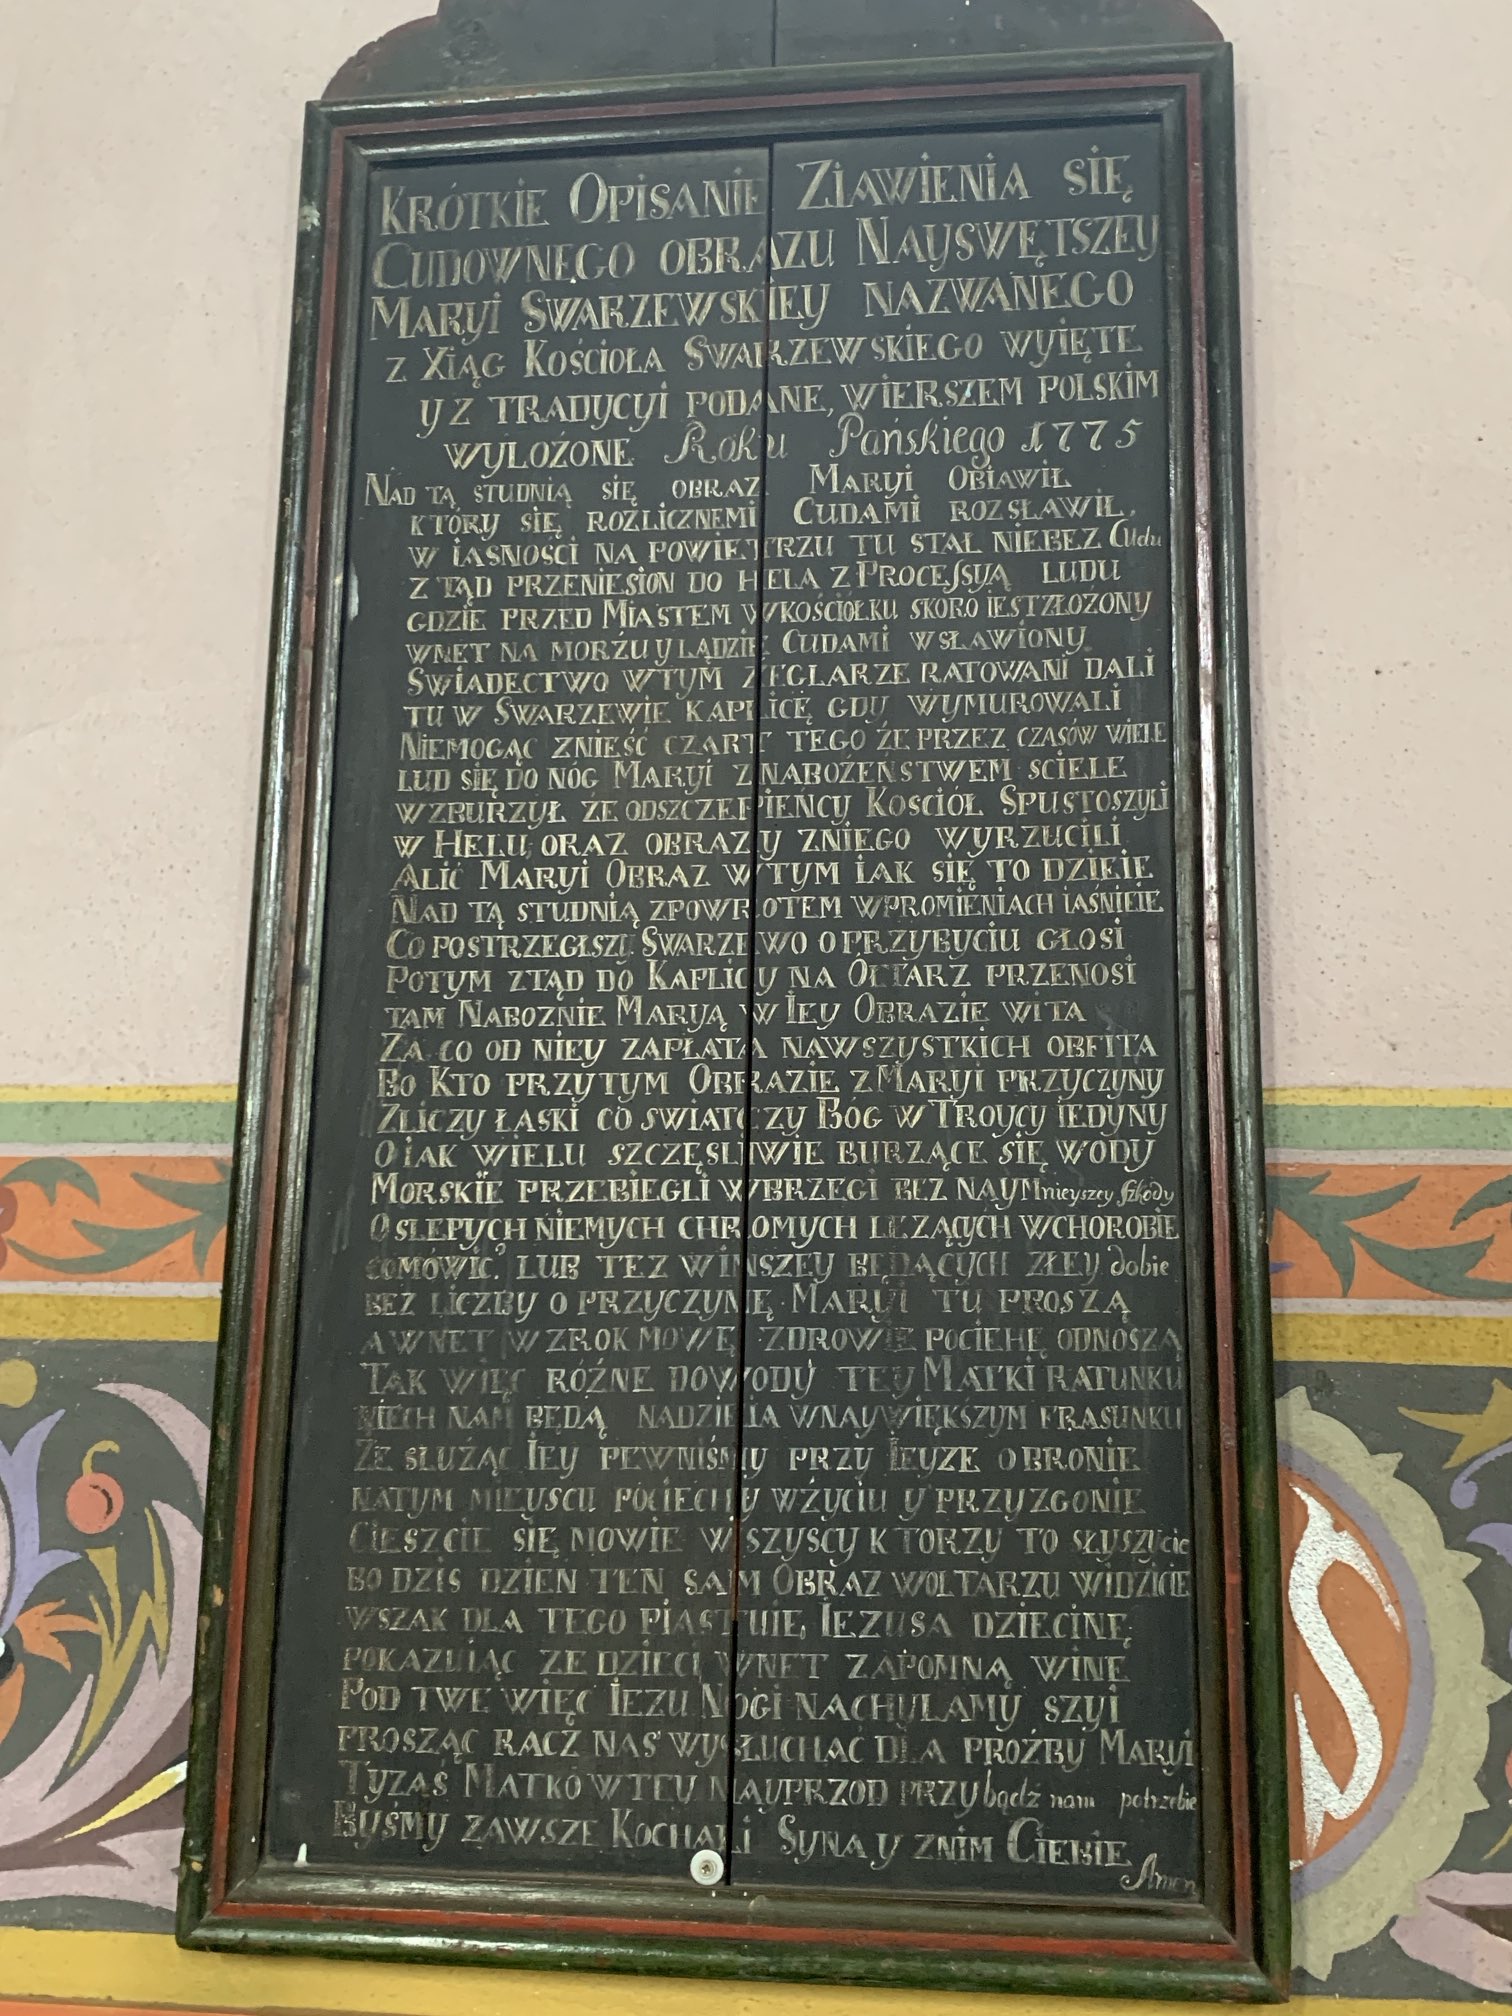 KRÓTKIE OPISANIE ZIAWIENIA SIĘ
CUDOWNEGO OBRAZU NAYSWĘTSZEY
MARYI SWARZEWSKIEY NAZWANEGO
Z XIĄG KOŚCIOŁA SWARZEWSKIEGO WYIĘTE
Y Z TRADYCYI PODANE, WIERSZEM POLSKIM
WYLOŻONE Roku Pańskiego 1775
NAD TĄ STUDNIĄ SIĘ OBRAZ MARYI OBIAWIŁ
KTÓRY SIĘ ROZLICZNEMI CUDAMI ROZSŁAWIŁ,
W IASNOŚCI NA POWIETRZU TU STAŁ NIEBEZ Cudu
Z TĄD PRZENIESION DO HELA Z PROCEſSYĄ LUDU
GDZIE PRZED MIASTEM WKOŚCIOŁKU SKORO IEST ZŁOŻONY
WNET NA MORŻU Y LĄDZIE CUDAMI WSŁAWIONY
SWIADECTWO WTYM ZEGLARZE RATOWANI DALI
TU W SWARZEWIE KAPLICĘ GDY WYMUROWALI
NIEMOGĄC ZNIEŚĆ CZART TEGO ŻE PRZEZ CZASÓW WIELE
LUD SIĘ DO NÓG MARYI ZNABOŻEŃSTWEM SCIELE
WZBURZYŁ ŻE ODSZCZEPIEŃCY KOSCIÓŁ SPUSTOSZYLI
W HELU ORAZ OBRAZY ZNIEGO WYRZUCILI
ALIĆ MARYI OBRAZ WTYM IAK SIĘ TO DZIEIE
NAD TĄ STUDNIĄ ZPOWROTEM WPROMIENIACH IAŚNIEIE
CO POSTRZEGŁSZY SWARZEWO O PRZYBYCIU GŁOSI
POTYM ZTĄD DO KAPLICY NA OŁTARZ PRZENOSI
TAM NABOZNIE MARYĄ W IEY OBRAZIE WITA
ZA CO OD NIEY ZAPŁATA NAWSZYSTKICH OBFITA
BO KTO PRZYTYM OBRAZIE Z MARYI PRZYCZYNY
ZLICZY ŁASKI CO SWIATCZY BÓG W TROYCY IEDYNY
O IAK WIELU SZCZĘSLIWIE BURZĄCE SIĘ WODY
MORSKIE PRZEBIEGLI WBRZEGI BEZ NAYMnieyszey Szkody
O SLEPYCH NIEMYCH CHROMYCH LEZĄCYCH WCHOROBIE
COMÓWIĆ? LUB TEZ WINSZEY BĘDĄCYCH ZŁEY dobie
BEZ LICZBY O PRZYCZYNĘ MARYI TU PROSZĄ
A WNET WZROK MOWĘ ZDROWIE POCIEHĘ ODNOSZĄ
TAK WIĘC RÓŻNE DOWODY TEY MATKI RATUNKU
NIECH NAM BĘDĄ NADZIEIA WNAYWIĘKSZYM FRASUNKU
ŻE SŁUŻĄC IEY PEWNIŚMY PRZY IEYZE OBRONIE
NATYM MIEYSCU POCIECHY WŻYCIU Y PRZYZGONIE
CIESZCIE SIĘ MOWIE WSZYSCY KTORZY TO SŁYSZYcie
BO DZIS DZIEN TEN SAM OBRAZ WOLTARZU WIDZICIE
WSZAK DLA TEGO PIASTUIE IEZUSA DZIECINĘ
POKAZUIĄC ZE DZIECI WNET ZAPOMNĄ WINĘ
POD TWE WIĘC IEZU NOGI NACHYLAMY SZYI
PROSZĄC RACZ NAS WYSŁUCHAĆ DLA PROŹBY MARYI
TYZAŚ MATKO WTEY NAYPRZOD PRZYbądź nam potrzebie
BYSMY ZAWSZE KOCHALI SYNA Y ZNIM CIEBIE
Amen